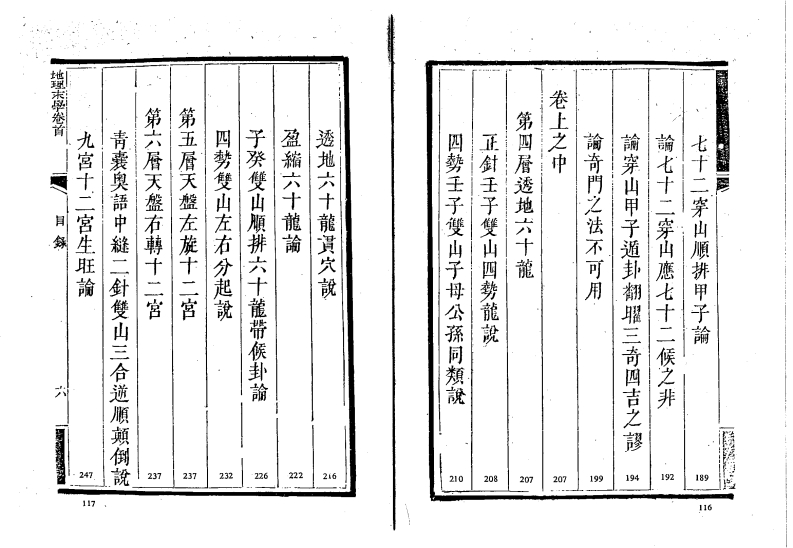 七十二穿山順排甲子論
189
論七十二穿山應七十二候之非
192
論穿山甲子遁卦翻曜三奇四吉之謬
194
論奇門之法不可用
199
卷上之中
207
第四層透地六十龍
207
正針壬子雙山四勢龍說
208
四勢壬子雙山子母公孫同類說
210
116
透地六十龍貫穴說
216
盈縮六十龍論
222
子癸雙山順排六十龍帶候卦論
226
四勢雙山左右分起說
232
第五層天盤左旋十二宮
237
第六層天盤右轉十二宮
237
青囊奧語中縫二針雙山三合逆順顛倒說
九宮十二宮生旺論
247
地理末學卷首
目錄
六
117